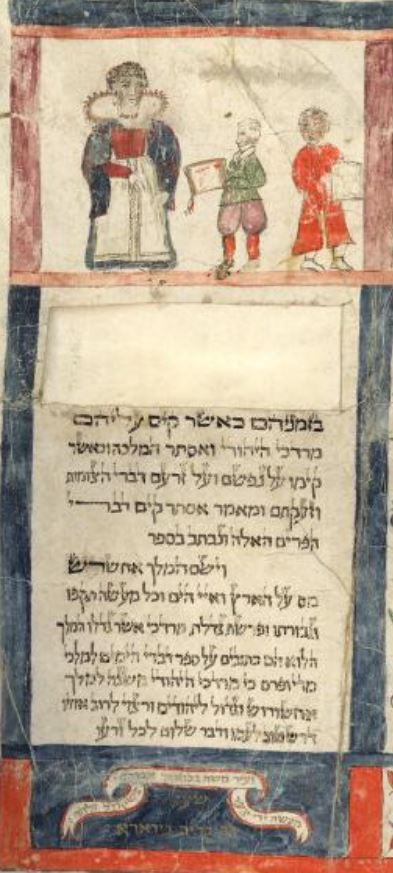 בזמניהם כאשר קים עליהם
מרדכי היהודי ואסתר המלכה וכאשר
קימו על נפשם ועל זרעם דברי הצומות
וזעקתם ומאמר אסתר קים דברי
הפרים האלה ונכתב בספר
וישם המלך אחשרש
מס על הארץ ואיי הים וכל מעשה תקפו
וגבורתו ופרשת גדלת מרדכי אשר גדלו המלך
הלוא הם כתובים על ספר דברי הימים למלכי
מדי ופרס כי מרדכי היהודי משנה למלך
אחשורוש וגדול ליהודים ורצוי לרוב אחיו
דרש טוב לעמו ודבר שלום לכל זרעו
משה
מעשה ידי